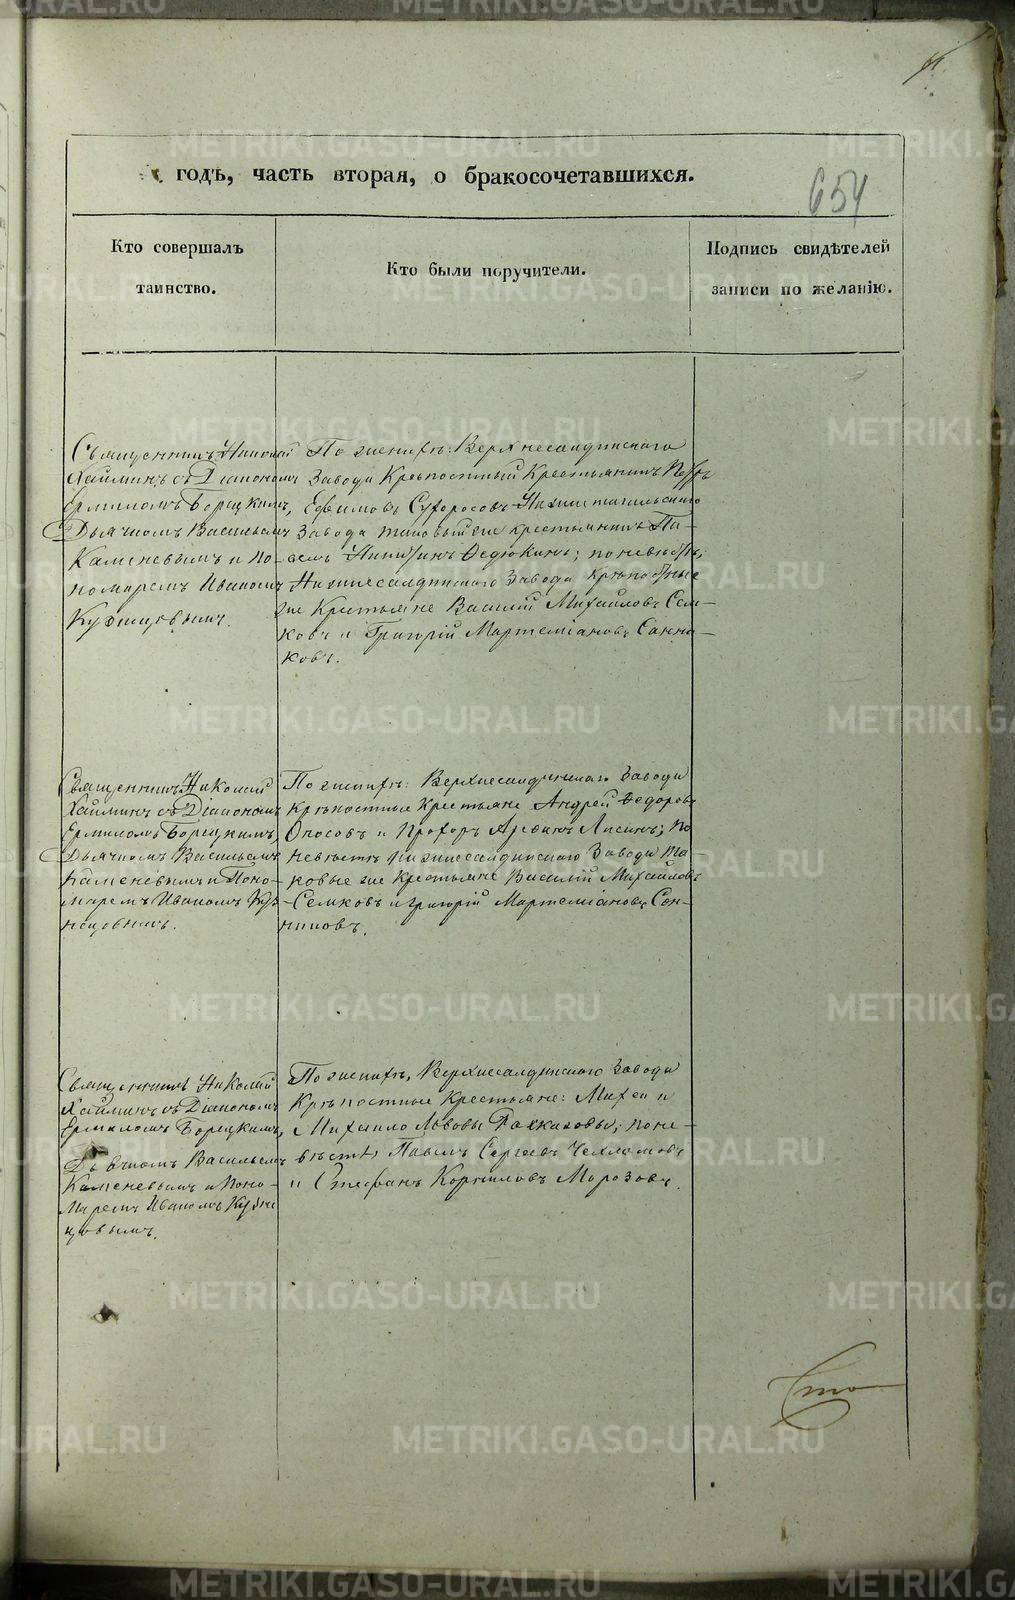 годъ, часть вторая, о бракосочетавшихся.
654
Кто совершалъ
таинство.
Кто были поручители.
Подпись свидѣтелей
записи по желанію.
Священникъ Николай
Хаймин съ Діакономъ
Ермиломъ Борецкимъ,
Дьячкомъ Васильемъ
Каменевымъ и по-
номаремъ Иваномъ
Кузнецовымъ.
По женихѣ: Верхнесалдинскаго
Завода Крѣпостный Крестьянинъ Петръ
Ефимовъ Сухоросовъ Нижнетагильскаго
Завода таковый же крестьянинъ Па-
велъ Никитинъ Ѳедюкинъ; по невѣстѣ;
Нижнесалдинскаго Завода Крѣпостные
же Крестьяне Василій Михайловъ Сем-
ковъ и Григорій Мартеміановъ
ковъ.
Священникъ Николай
Хайминъ съ Діакономъ
Ермиломъ Борецкимъ,
Дьячкомъ Васильемъ
Каменевымъ и Поно-
маремъ Иваномъ Куз-
нецовымъ.
По женихѣ: Верхнесалдинскаго Завода
Крѣпостные Крестьяне Андрей Ѳедоровъ
Опосовъ и Прохоръ Лисинъ; по
невѣстѣ Нижнесалдинскаго Завода та-
ковые же Крестьяне Василій Михайловъ
Семковъ и Григорій Мартеміановъ Сан-
никовъ.
Священникъ Николай
Хайминъ съ Діакономъ
Ермиломъ Борецкимъ,
Дьячкомъ Васильемъ
Каменевымъ и Поно-
маремъ Иваномъ Кузне-
цовымъ.
По женихѣ, Верхнесалдинскаго Завода
Крѣпостные Крестьяне: Михей и
Михайло Львовы; по не-
вѣстѣ, Павелъ Сергѣевъ
и Стефанъ Корниловъ Морозовъ.
METRIKI.GASO-URAL.RU